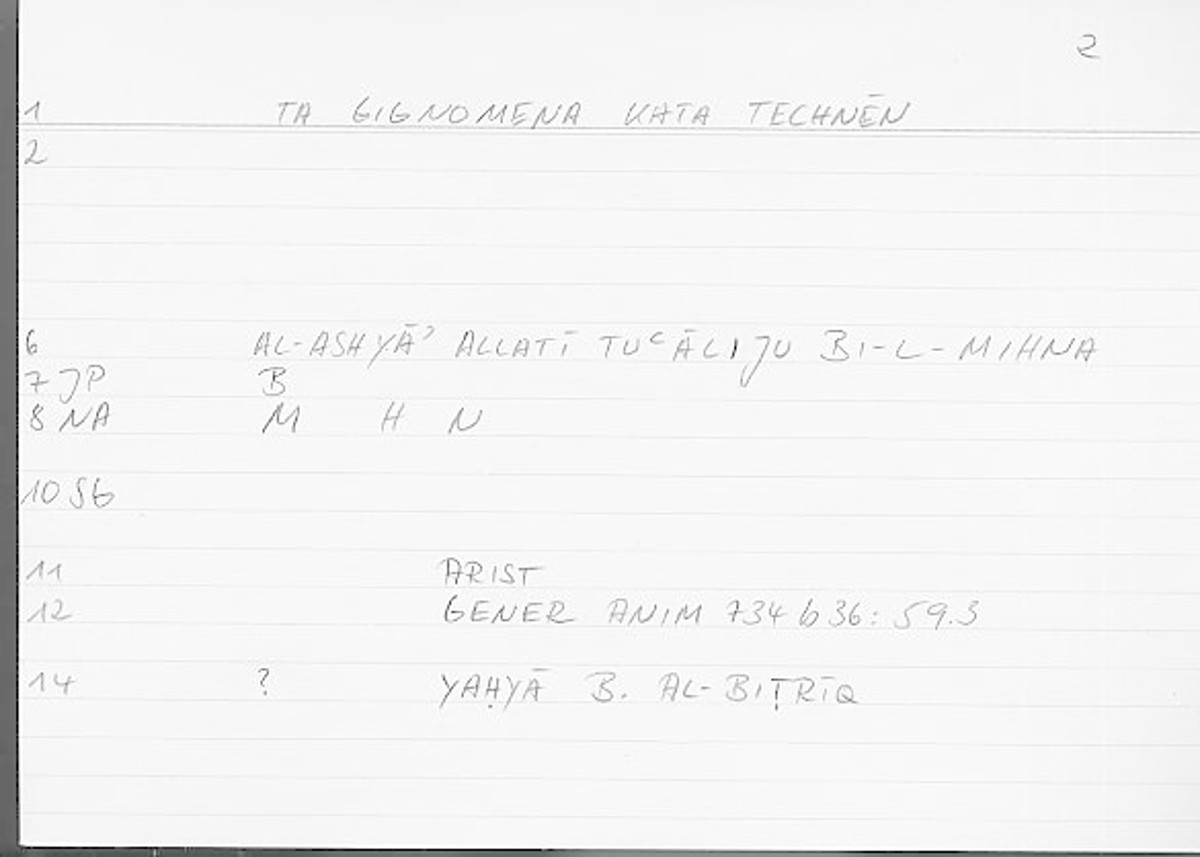 2
1 TA GIGNOMENA KATA TECHNĒN
2
6 AL-ASHYĀʾ ALLATĪ TUʿĀLIJU BI-L-MIHNA
7 JP B
8 NA M H N
10 SG
11 ARIST
12 GENER ANIM 734 b 36: 59.3
14 ? YAḤYĀ B. AL-BIṬRĪQ